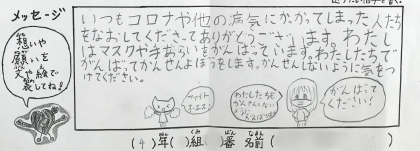 メッセージ
想いや
願いを
文や絵で
表してね!
いつもコロナや他の病気にかかってしまった人たち
をなおしてくださってありがとうございます。わたし
はマスクや手あらいをがんばっています。わたしたちで
がんばってかんせんよぼうをします。かんせんしないように気をつ
けてください。
ファイト
オーエス!
わたしたちも
かんせんしない
ように
がんばって
ください!
(4)年( )組( )番 名前( )